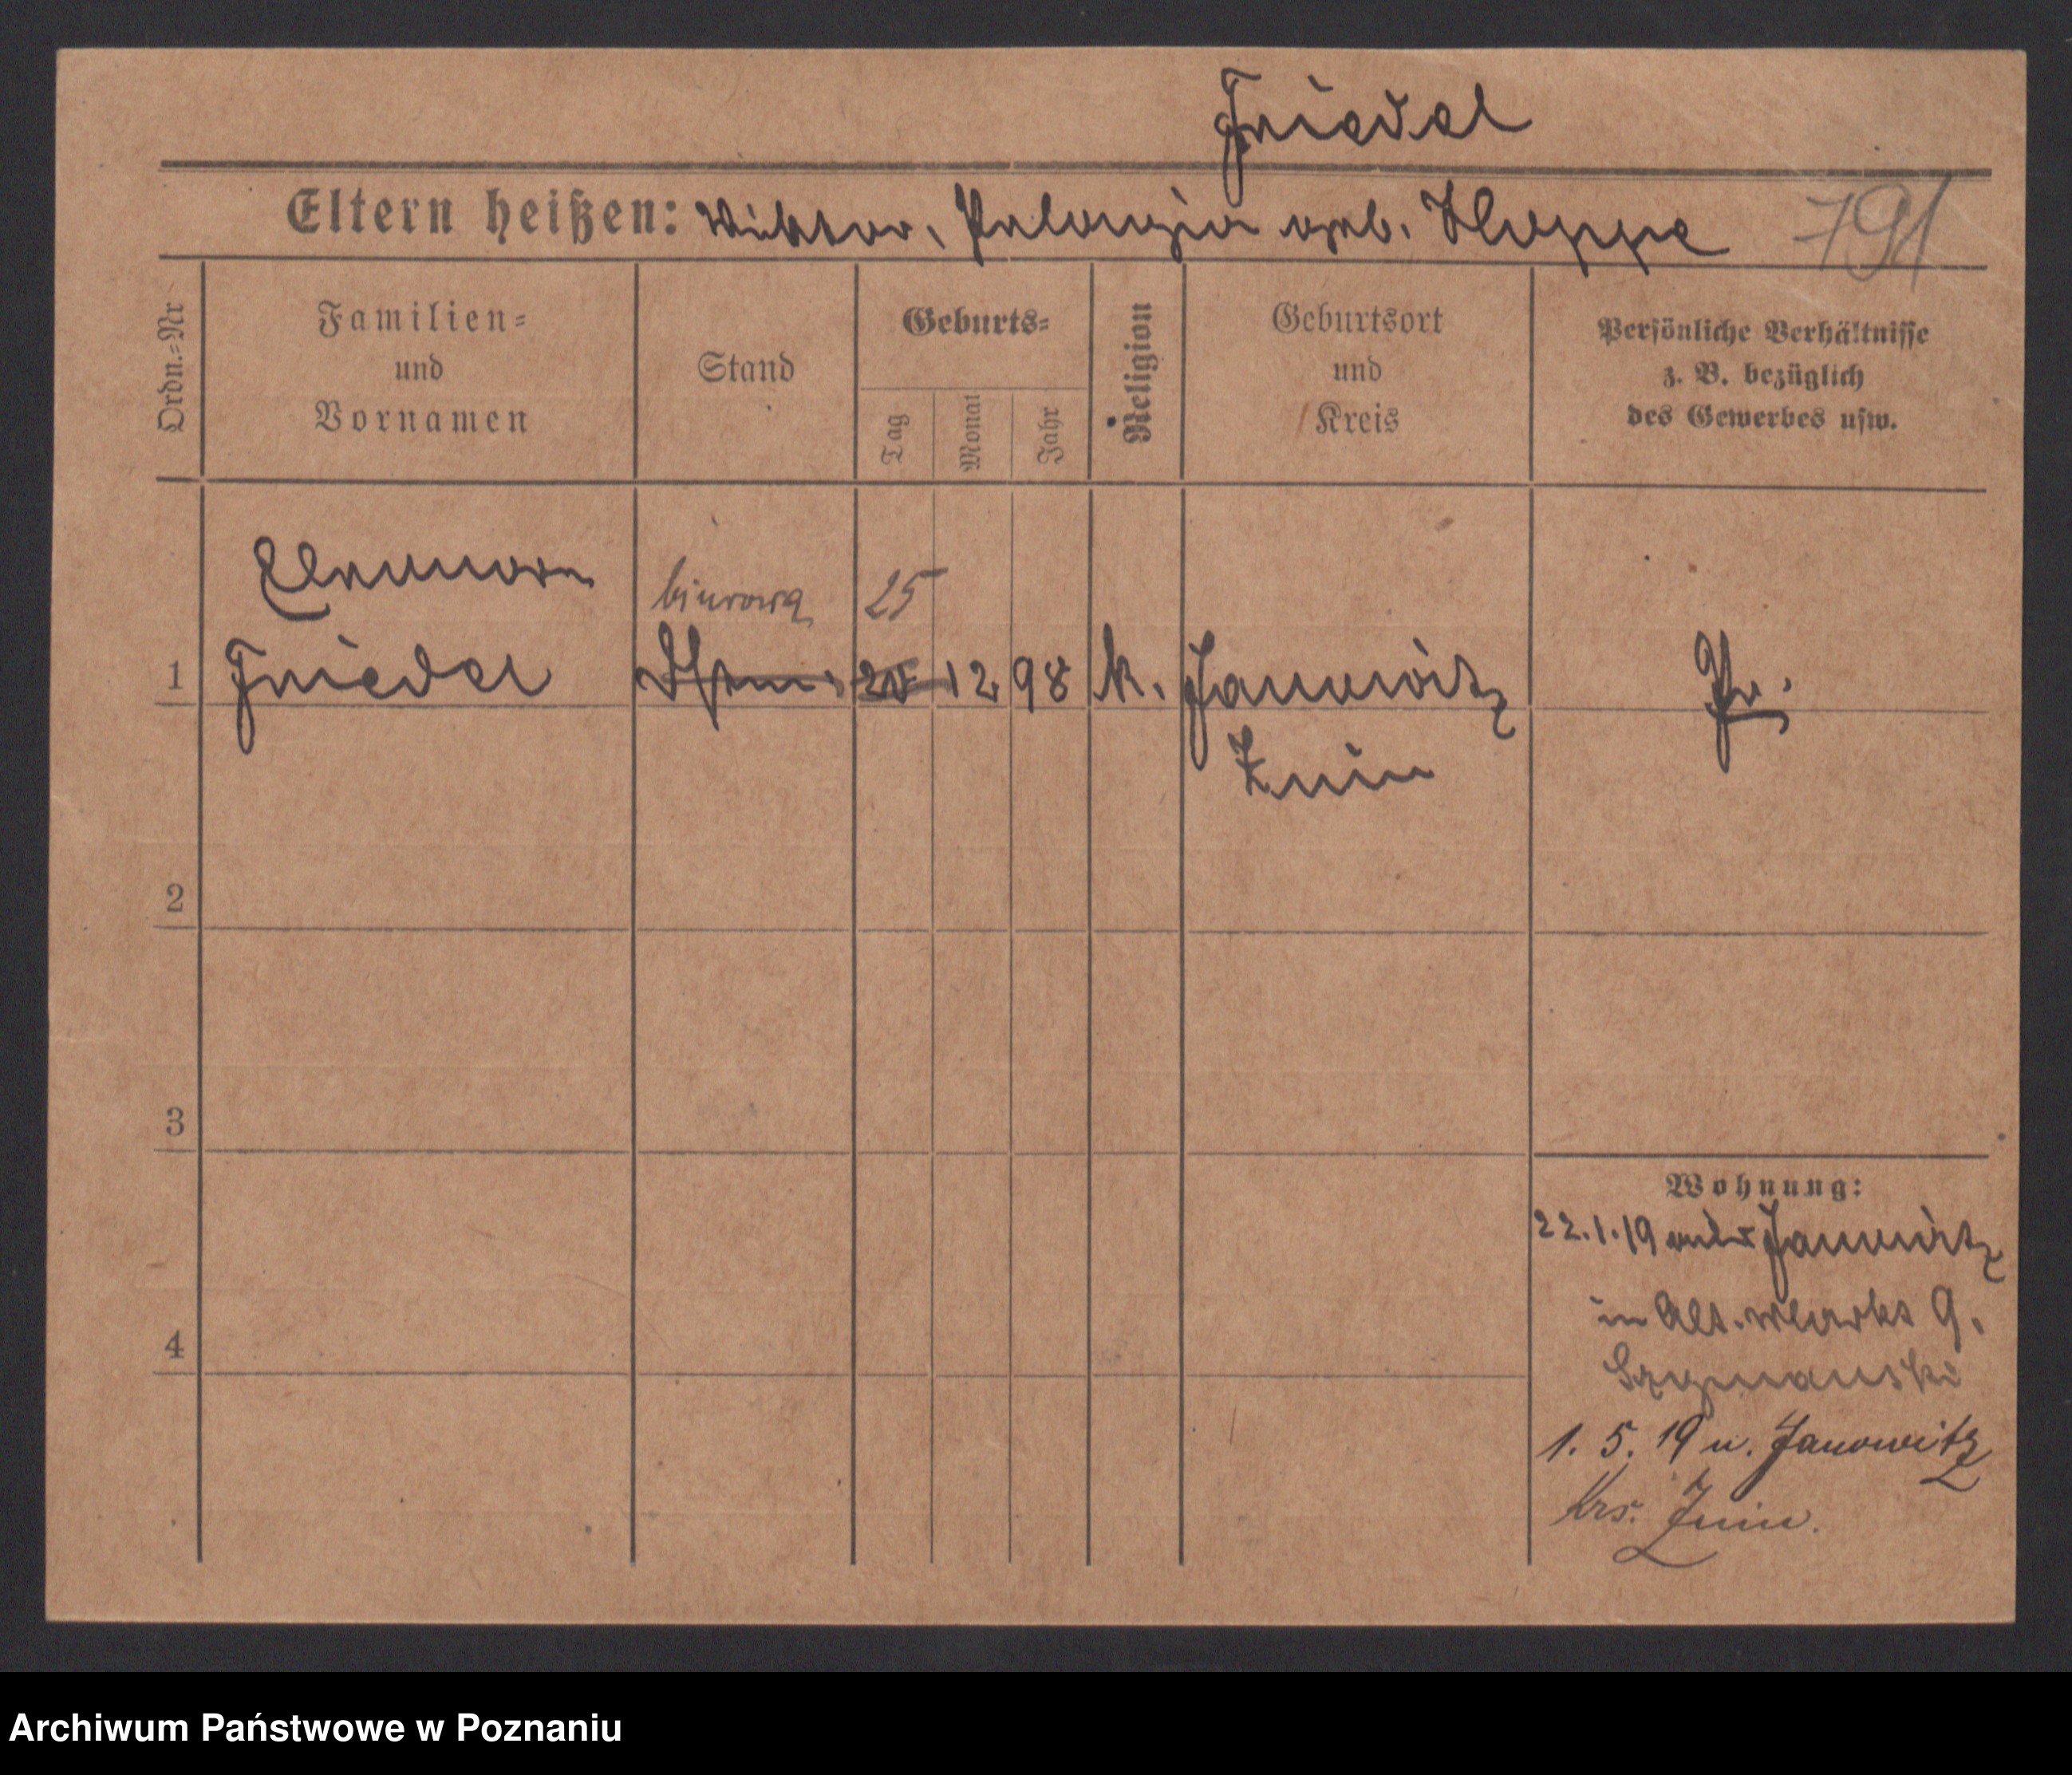 Friedel
Eltern heißen: Wiktor, Pelagia geb. Hoppe 791
Ordn.-Nr
Familien-
und
Vornamen
Stand
Geburts-
Tag
Monat
Jahr
Religion
Geburtsort
und
Kreis
Persönliche Verhältnisse
z. B. bezüglich
des Gewerbes usw.
biurowa 25
1 Friedel 12 98 k. Janowitz Pr.
Znin
2
3
4
Wohnung:
22.1.19 Janowitz
in Alt. Markt 9.
Szymanski
1. 5. 19 n. Janowitz
Krs. Znin.
Archiwum Państwowe w Poznaniu